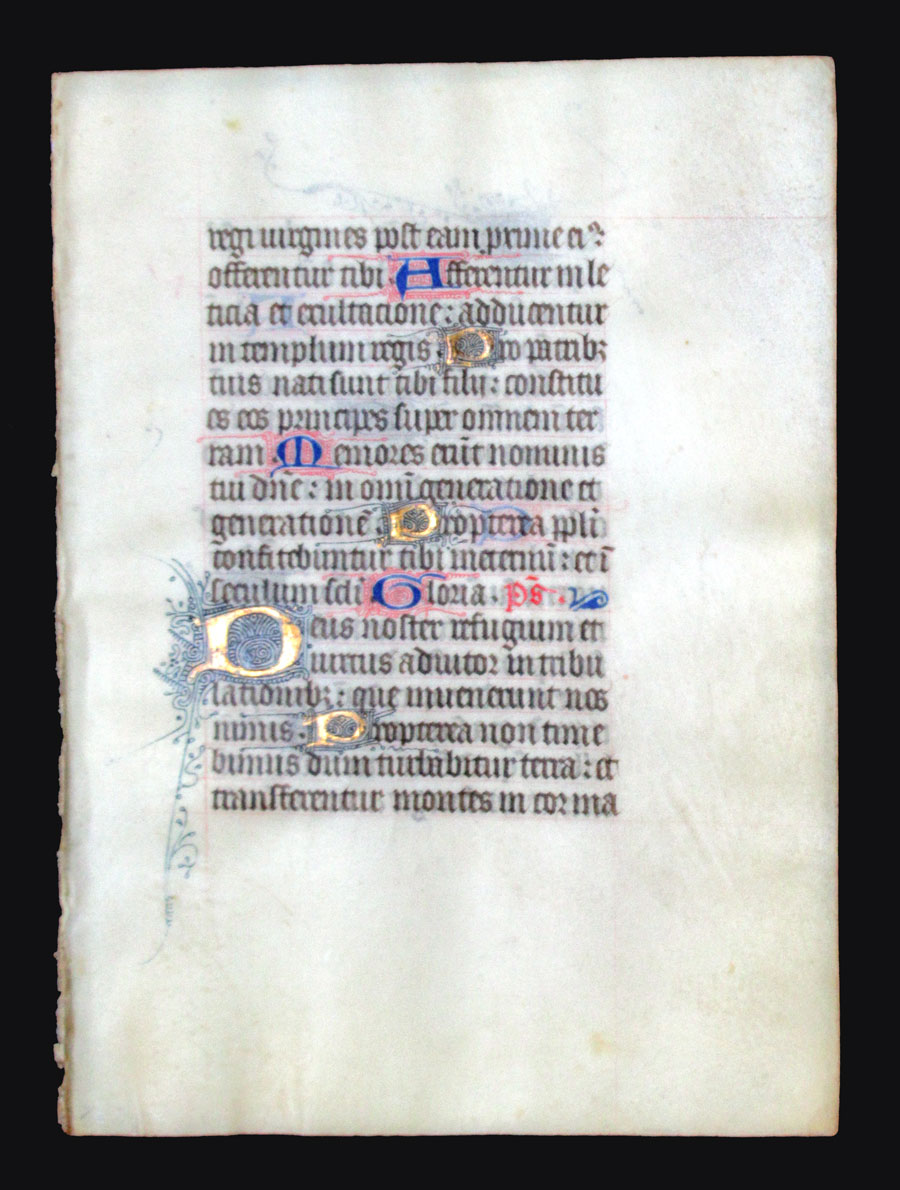 regi uirgines post eam proxime eiꝰ
offerentur tibi. Afferentur in le
ticia et exultacione: adducentur
in templum regis. Pro patribꝫ
tuis nati sunt tibi filij: constitu
es eos principes super omnem ter
ram. Memores erūt nominis
tui dn̄e: in omī generatione et
generationē. Propterea ppl̄i
confitebuntur tibi ineternū: et ī
seculum scl̄i. Gloria. p̄s.
Deus noster refugium et
uirtus adiutor in tribu
lationibꝫ: que inuenerunt nos
nimis. Propterea non time
bimus dum turbabitur terra: et
transferentur montes in cor ma